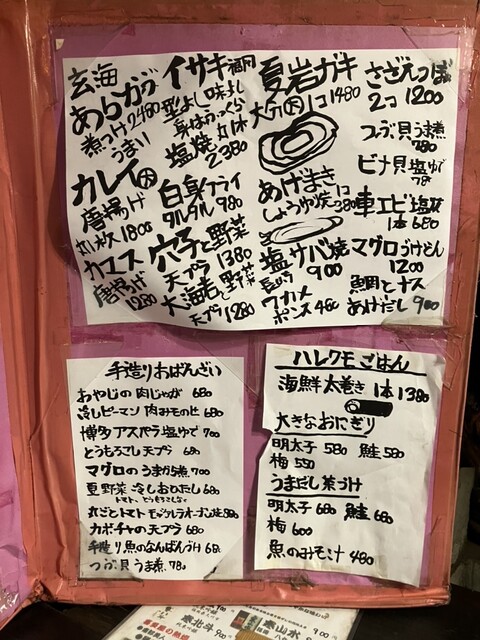 玄海
あらカブ
煮つけ 2480
うまい
カレイ大
唐揚げ
丸1枚 1800
カエス
唐揚げ
1280
イサキ
型よし味よし
身はふっくら
塩焼 丸1本
2380
白身フライ
タルタル 980
穴子と野菜
天プラ 1380
大海老と野菜
天プラ 1280
夏岩ガキ
大分 大 1コ 1480
あげまき
しょうゆ焼 1コ 380
塩サバ焼
長崎 900
ワカメ
ポンス 480
さざえつぼ
2コ 1200
つぶ貝うま煮
780
ビナ貝塩ゆで
78
車エビ塩焼
1本 680
マグロうけどん
1200
鯛とナス
あげだし 900
手造りおばんざい
おやじの肉じゃが 680
冷しピーマン 肉みそのせ 680
博多アスパラ塩ゆで 700
とうもろこし天プラ 680
マグロのうまから煮 700
夏野菜冷しおひたし 680
トマト、とうもろこしなど
丸ごとトマト モッツァレラオーブン焼 880
カボチャの天プラ 680
手造り魚のなんばんづけ 680
つぶ貝うま煮 780
ハレクモごはん
海鮮太巻き 1本 1380
大きなおにぎり
明太子 580 鮭 580
梅 550
うまだし茶づけ
明太子 680 鮭 680
梅 600
魚のみそ汁 480
秦北斗 900
泰山水